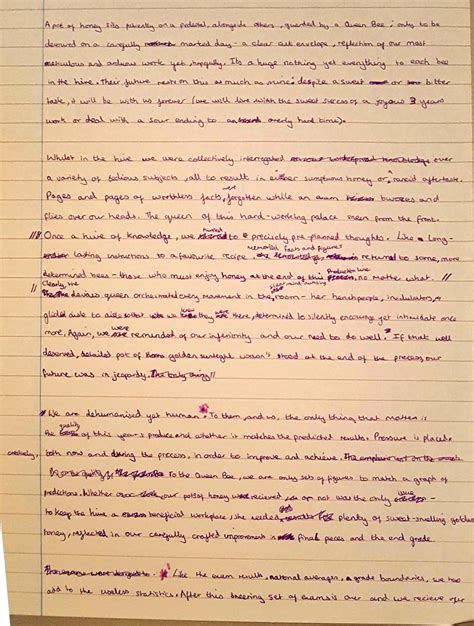 A pot of honey sits patiently on a pedestal, alongside others, guarded by a Queen Bee; only to be
devoured on a carefully marked day - a clear cut envelope, reflection of our most
meticulous and arduous work yet, happily. Its a huge nothing yet everything to each bee
in the hive. Their future rests on this as much as mine: despite a sweet or bitter
taste, it will be with us forever (we will live with the sweet success of a joyous 3 years
work or deal with a sour ending to an overly hard time).
Whilst in the hive we were collectively interrogated over
a variety of tedious subjects, all to result in either sumptuous honey or rancid aftertaste.
Pages and pages of worthless facts, forgotten while an exam buzzes and
flies over our heads. The queen of this hard-working palace seen from the front.
Once a hive of knowledge, we to precisely pre-planned thoughts. Like a long-
lasting instructions to a favourite recipe, memorised facts and figures returned to some, more
determined bees - those who must enjoy honey at the end of this production line, no matter what.
Clearly, the devious queen orchestrated every movement in the room - her henchpeople, invigilators,
glided aisle to aisle to let us know they were there, determined to silently encourage yet intimidate once
more. Again, we were reminded of our inferiority and our need to do well. If that well
deserved, detailed pot of golden sunlight wasn't stood at the end of the process, our
future was in jeopardy.
We are dehumanised yet human. To them, and us, the only thing that matters is
the quality of this year's produce and whether it matches the predicted results. Pressure is placed
both now and during the process, in order to improve and achieve.
To the Queen Bee, we are only sets of figures to match a graph of
predictions. Whether our pots of honey was recieved or not was the only issue -
to keep the hive a beneficial workplace, she needed plenty of sweet-smelling golden
honey, reflected in our carefully crafted improvement final peces and the end grade.
Like the exam results, national averages, grade boundaries, we too
add to the useless statistics. After this tiring set of exams is over and we recieve our